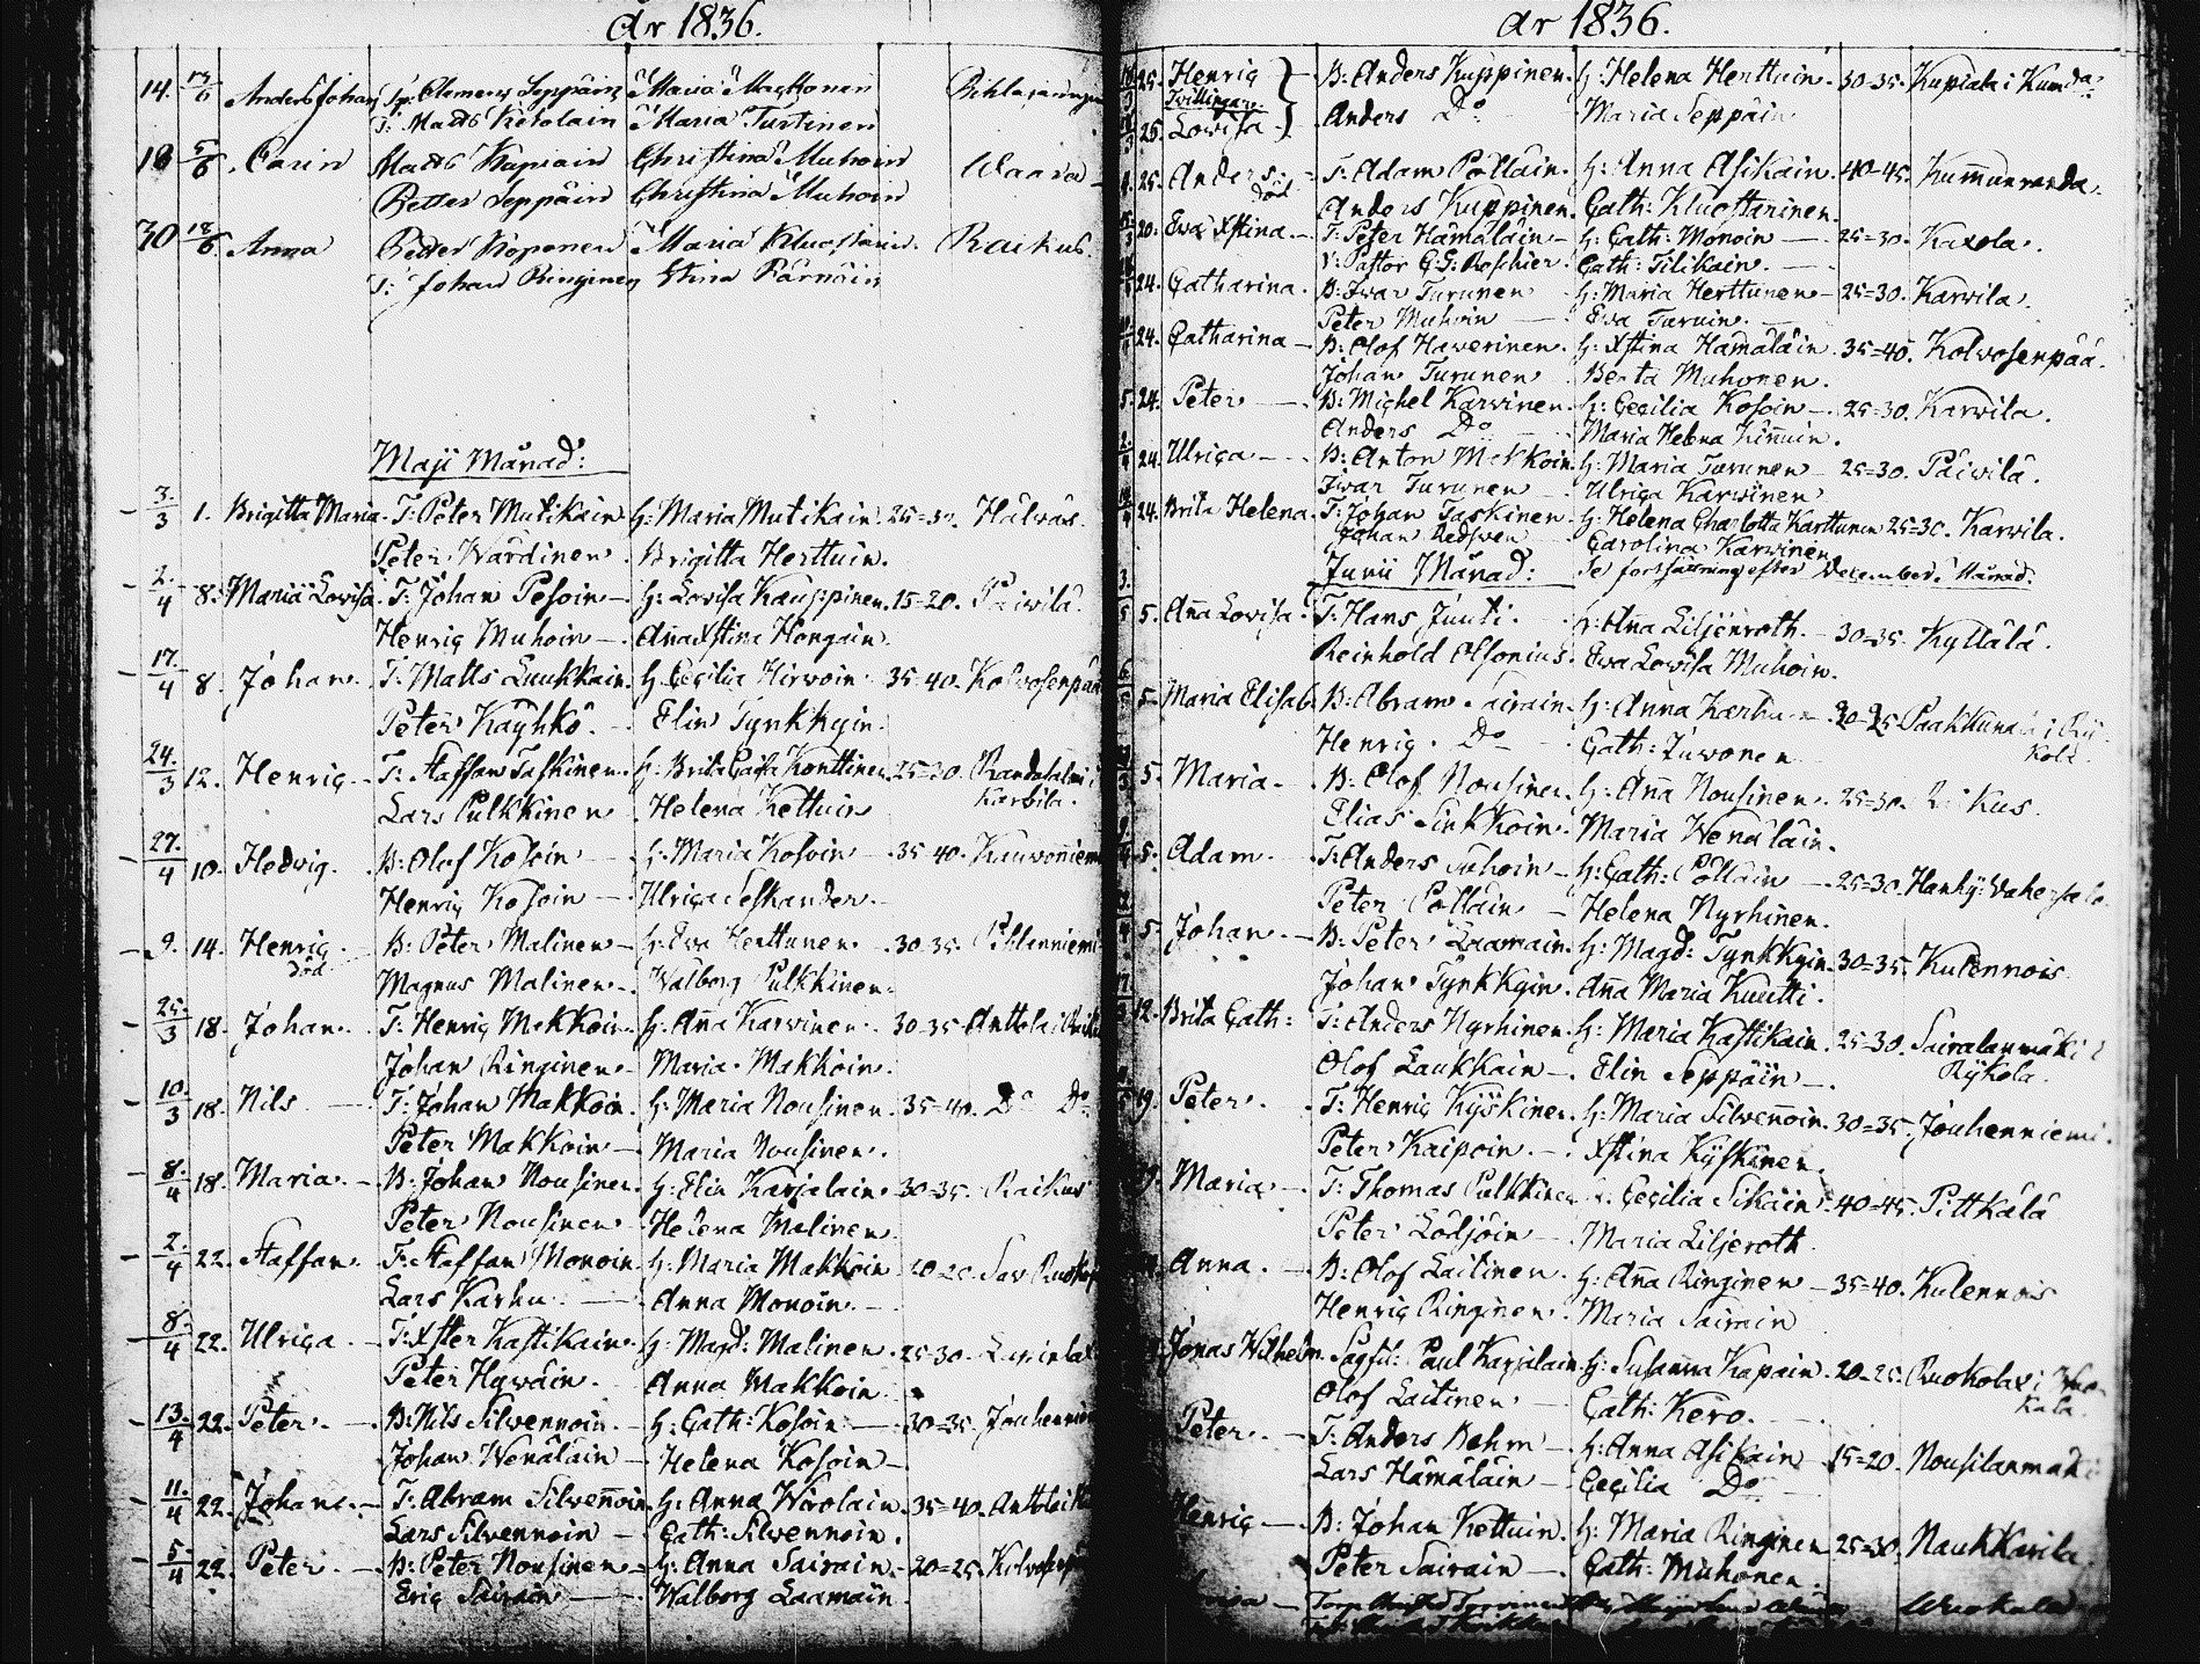 År 1836.
14. Anders Johan Clemens Seppäin Maria
T: Matts Ketolain Maria Turtinen
18 5/6 Carin Matts Kapiain Christina Muhoin Waara
Petter Seppäin Christina Muhoin
30 18/6 Anna Petter Koponen Maria Kluostarin. Raikus.
T: Johan Ringinen Stina Pärnäin
Maji Månad:
3/3 1. Brigitta Maria. T: Peter Mutikain H: Maria Mutikain. 25=30. Hälväs.
Peter Wardinen. Brigitta Herttuin.
2/4 8. Maria Lovisa T: Johan Pesoin H: Lovisa Kauppinen. 15=20. Päiwilä.
Henric Muhoin Ana Xstina Hongain.
17/4 8. Johan. T: Matts Luukkain. H. Cecilia Hirwoin. 35=40. Kolvosenpää
Peter Käyhkö. Elin Tynkkyin.
24/3 12. Henric. T: Staffan Taskinen. H: Brita Caisa Konttinen. 25=30. Randasalmi i
Lars Pulkkinen Helena Kettuin Karvila.
27/4 10. Hedvig. B: Olof Kosoin H. Maria Kosoin 35 40. Kauvonniemi
Henric Kosoin Ulrica Seskander.
9. 14. Henric. B: Peter Malinen H: Eva Herttunen 30 35. Pihlanniemi
död Magnus Malinen. Walborg Pulkkinen.
25/3 18. Johan. T: Henric Makkoin. H: Ana Karvinen. 30=35 Anttola i
Johan Ringinen Maria Makkoin.
10/3 18. Nils T: Johan Makkoin. H: Maria Nousinen. 35=40. Do Do
Peter Makkoin Maria Nousinen.
8/4 18. Maria. B: Johan Nousinen. H: Elin Karjalain. 30=35. Raikus
Peter Nousinen Helena Malinen
2/4 22. Staffan. T: Staffan Monoin H: Maria Makkoin Sav
Lars Karhu. Anna Monoin.
8/4 22. Ulrica. T: Xster Kastikain. H: Magd: Malinen. 25=30.
Peter Hyväin. Anna Makkoin
13/4 22. Peter. B: Nils Silvennoin. H: Cath: Kosoin 30=35. Jouhenniemi
Johan Wenäläin Helena Kosoin
11/4 22. Johan. T: Abram Silvennoin. H: Anna Wirolain. 35=40. Anttola i
Lars Silvennoin Cath: Silvennoin.
5/4 22. Peter. B: Peter Nousinen H: Anna Sairain. 20=25.
Eric Sairain Walborg Laamain.
År 1836.
25. Henric B: Anders Kuppinen. H: Helena Herttuin. 30=35. Kupiala i
Tvillingar.
25. Lovisa Anders Do Maria Seppäin
25. Anders. T: Adam Pöllain. H: Anna Asikain. 40=45. Kummunranda.
död Anders Kuppinen. Cath: Kluostarinen.
20. Eva Xstina. T: Peter Hämäläin H: Cath: Monoin 25=30. Kaxola.
V: Pastor G: G: Roschier Cath: Tilikain.
24. Catharina. B: Ivar Turunen H: Maria Herttunen 25=30. Karvila.
Peter Muhoin Eva Turuin.
24. Catharina B: Olof Haverinen. H: Xstina Hämäläin. 35=40. Kolvosenpää.
Johan Turunen Berta Muhonen.
24. Peter B: Michel Karvinen. H: Cecilia Kosoin 25=30. Karvila.
Anders Do Maria Helena Kinnuin.
24. Ulrica B: Anton Makkoin. H: Maria Turunen 25=30. Päiwilä.
Ivar Turunen Ulrica Karvinen
24. Brita Helena. T: Johan Taskinen. H: Helena Charlotta Karttunen 25=30. Karvila.
Johan Redsven Carolina Karvinen
Junii Månad: Se fortsättning efter December Månad.
5. Ana Lovisa T: Hans Juuti. H: Ana Liljenroth. 30=35. Kyllälä.
Reinhold Olsonius. Eva Lovisa Muhoin.
5. Maria Elisab. B: Abram Sairain. H: Anna Karhu 20=25 Paakkuna i Ry-
Henric. Do Cath: Juvonen kola.
5. Maria. B: Olof Nousinen. H: Ana Nousinen. 25=30. Raikus.
Elias Sinkkoin. Maria Wenäläin.
5. Adam. T: Anders Suhoin H: Cath: Pöllain 25=30.
Peter Pöllain Helena Nyrhinen.
5. Johan. B: Peter Laamain. H: Magd: Tynkkyin. 30=35. Kulennois
Johan Tynkkyin. Ana Maria Kuutti.
12. Brita Cath: T: Anders Nyrhinen. H: Maria Kastikain. 25=30. Sairalanmäki i
Olof Laukkain Elin Seppäin Rykola.
19. Peter. T: Henric Kyyskinen. H: Maria Silvennoin. 30=35. Jouhenniemi.
Peter Kaipoin. Xstina Kyyskinen.
19. Maria T: Thomas Pulkkinen H: Cecilia Sikäin 40=45. Pittkälä
Peter Lödjöin Maria Liljeroth
Anna. B: Olof Laitinen. H: Ana Ringinen 35=40. Kulennois
Henric Ringinen. Maria Sairain
Jonas Wilhelm. Paul Karjalain. H: Susanna Kapain. 20=25. Ruokolax i
Olof Laitinen Cath: Kero.
Peter. T: Anders Behm H: Anna Asikain 15=20. Nousilanmäki
Lars Hämäläin Cecilia Do
Henric B: Johan Kettuin. H: Maria Ringinen 25=30. Naukkarila.
Peter Sairain Cath: Muhonen.